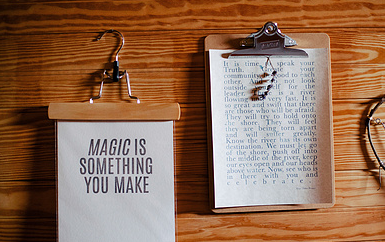 MAGIC IS
SOMETHING
YOU MAKE
It is time to speak your
Truth.
community.
good to each
other.
outside
for the
leader.
is a river
flowing
very fast. It is
so great and swift that there
are those who will be afraid.
They will try to hold onto
the shore. They will feel
they are being torn apart
and will suffer greatly.
Know the river has its own
destination. We must let go
of the shore, push off into
the middle of the river, keep
our eyes open and our heads
above water. Now, see who is
in there with you and
celebrate.